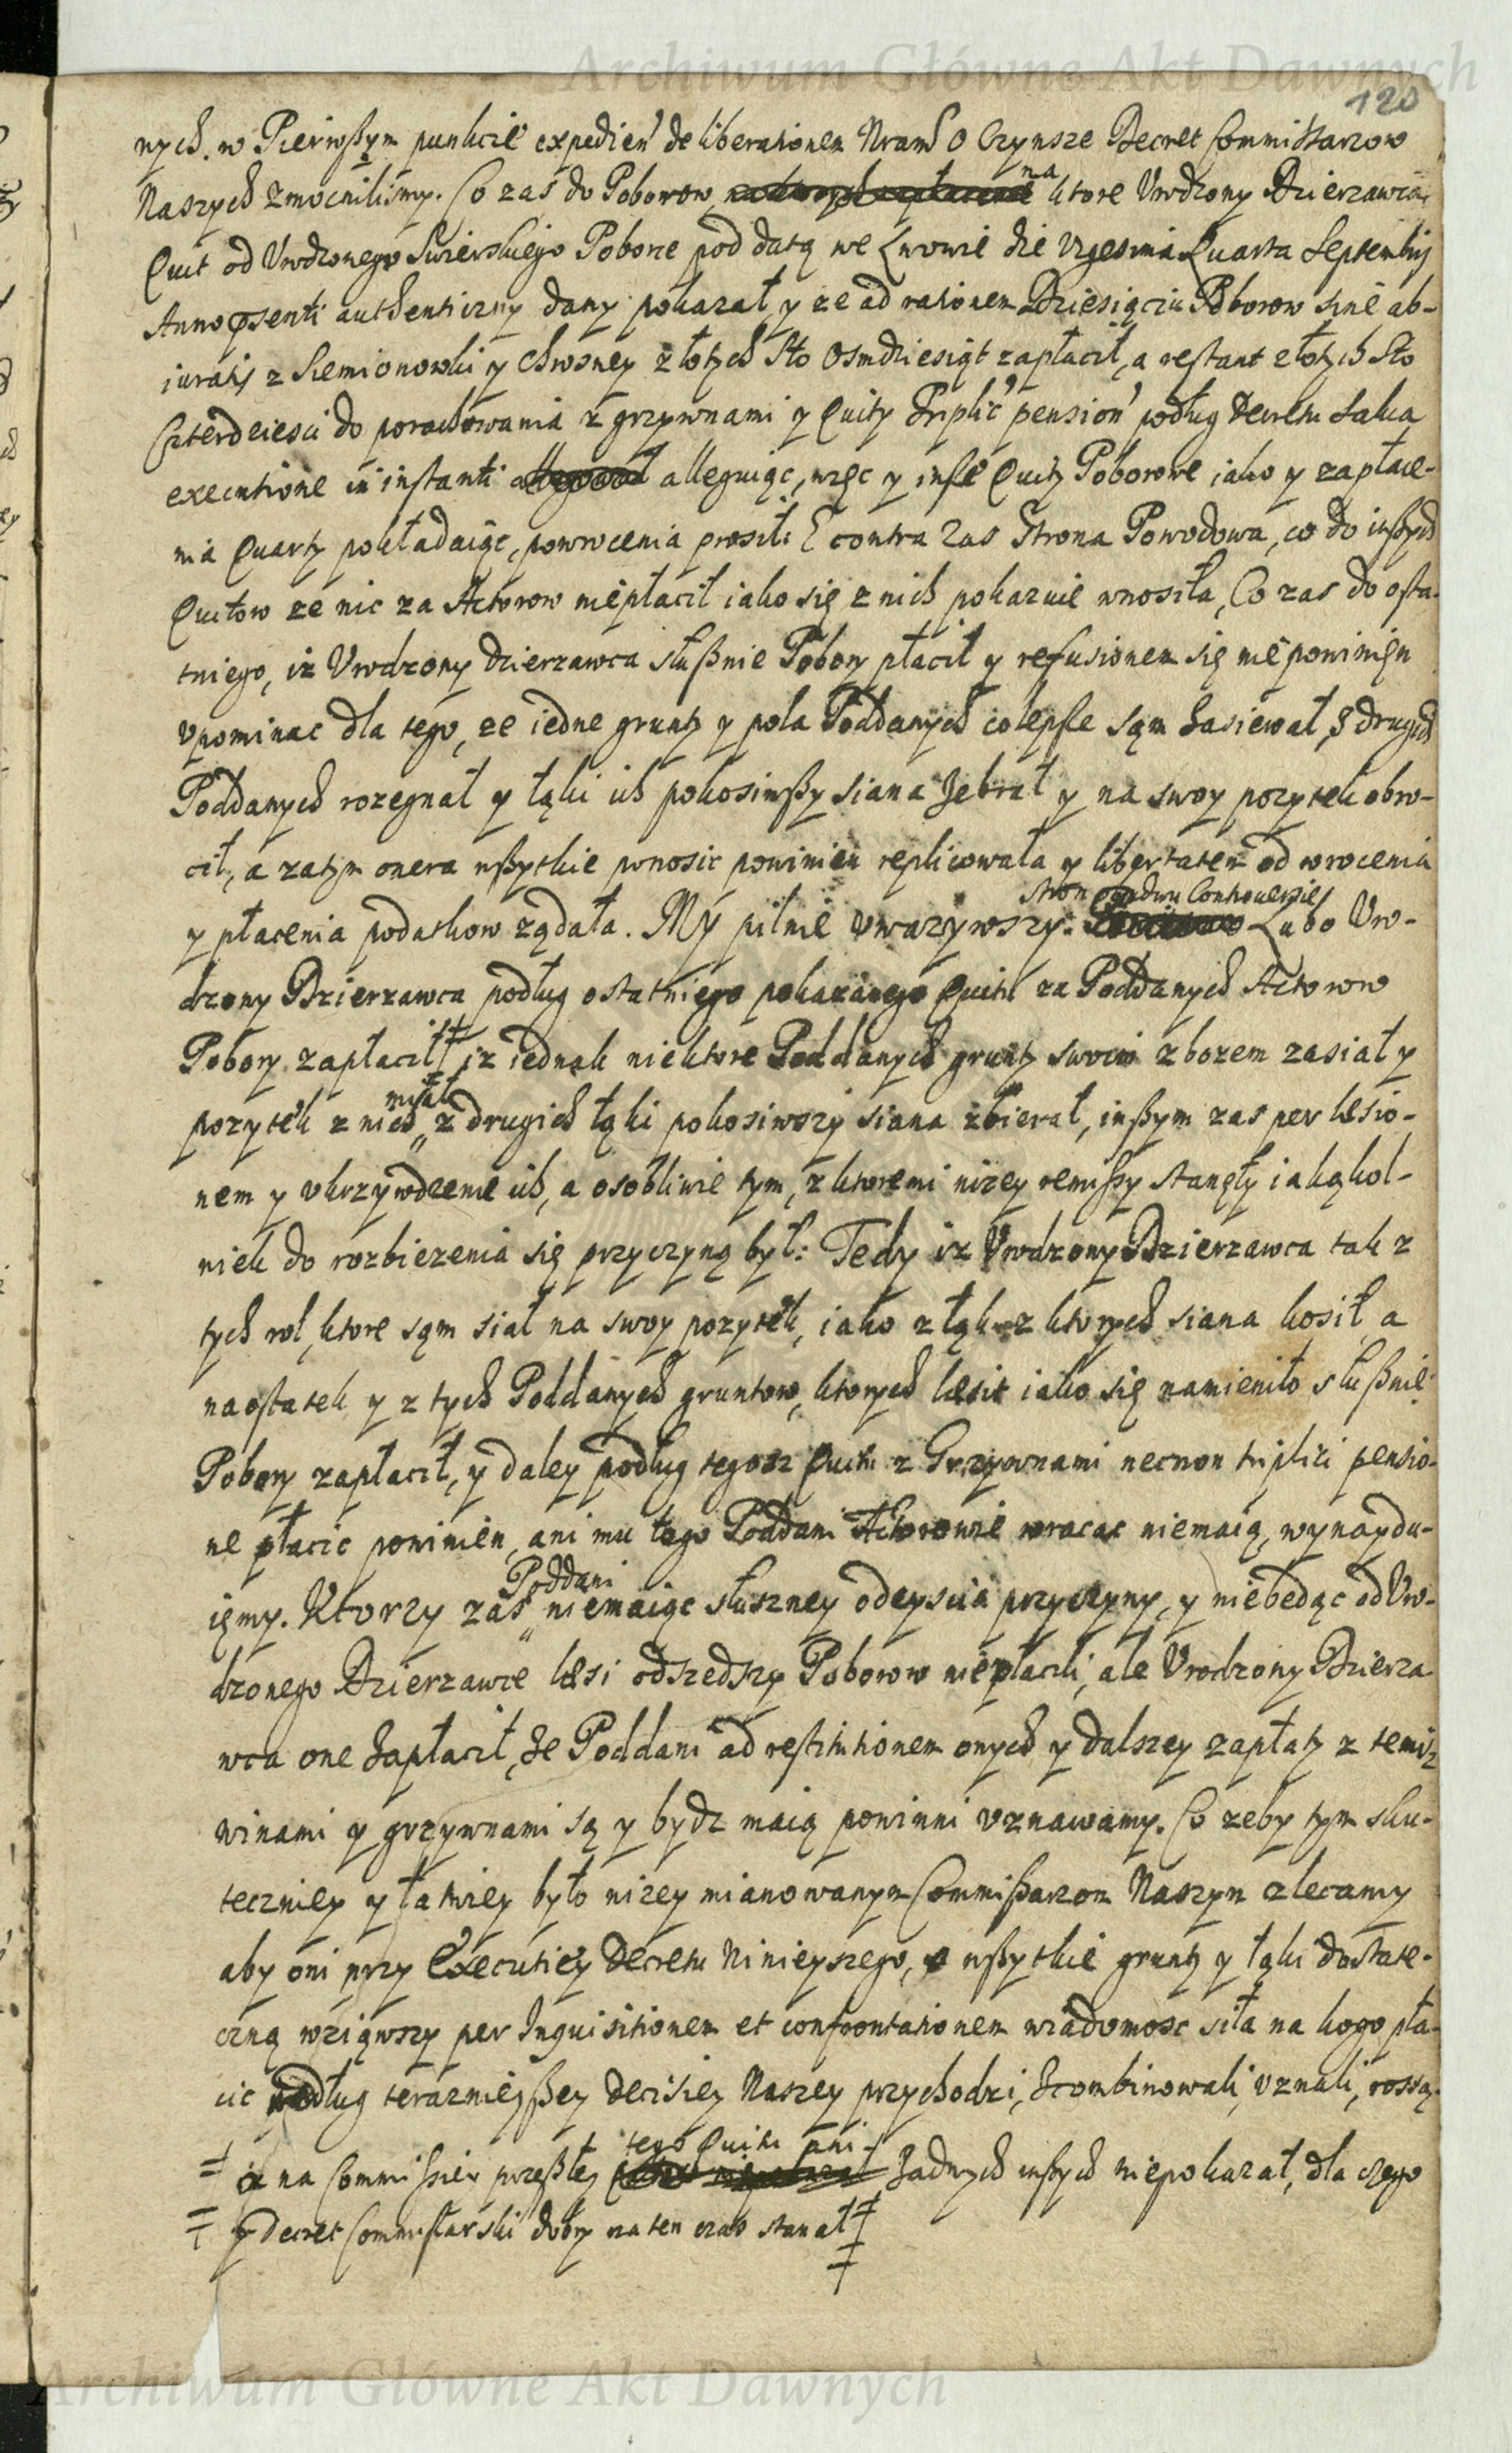 Archiwum Główne Akt Dawnych
120
nych. w Pierwßym punkcie expedień de liberationem Nram o Czynsze Decret Commissarzow
Naszych zmocnilismy. Co zas do Poborow, na ktore Vrodzony Dzierzawca
Quit od Vrodzonego Swierskiego Poborce pod datą we Lwowie die Vigesima Quarta Septembris
Anno psenti authenticzny dany pokazał y ze ad rationem Dziesiąciu Poborow sine ab-
iuratis z Siemionowki y Chrosney złotych Sto Osmdziesiąt zapłacił, a restant złotych Sto
Czterdziesci do porachowania z grzywnami y Quity Triplic pension podług Decretu salua
executione in instanti alleguiąc, więc y insze Quity Poborowe iako y zapłace-
nia Quarty pokładaiąc, powrocenia prosił: E contra zas Strona Powodowa, co do inßych
Quitow ze nic za Actorow niepłacił iako się z nich pokazuie wnosiła, Co zas do osta-
tniego, iz Vrodzony Dzierzawca słußnie Pobory płacił y refusionem się nie powinien
vpominac dla tego, ze iedne grunty y pola Poddanych co lepsze sąm zasiewał, z drugich
Poddanych rozegnał y łąki ich pokosiwßy siana zebrał y na swoy pozytek obro-
cił, a zatym onera wßytkie ponosic powinien replicowała y libertatem od wrocenia
y płacenia podatkow ządała. My pilnie vwazywszy: stron obudwu Controuersie Lubo Vro-
dzony Dzierzawca podług ostatniego pokazanego Quitu za Poddanych Actorow
Pobory zapłacił ǂ iz iednak niektore Poddanych grunty swoim zbozem zasiał y
pozytek z nich miał, z drugich łąki pokosiwszy siana zbierał, inßym zas per læsio-
nem y vkrzywdzenie ich, a osobliwie tym, z ktoremi nizey remißy stanęły iakąkol-
wiek do rozbiezenia się przyczyną był: Tedy iz Vrodzony Dzierzawca tak z
tych rol, ktore sąm siał na swoy pozytek, iako z łąk z ktorych siana kosił, a
naostatek y z tych Poddanych gruntow, ktorych læsit iako się namieniło słußnie
Pobory zapłacił, y daley podług tegosz Quitu z Grzywnami necnon triplici pensio-
ne płacic powinien, ani mu tego Poddani Actorowie wracac niemaią, wynaydu-
iemy. Ktorzy zas Poddani niemaiąc słuszney odeyscia przyczyny, y niebędąc od Vro-
dzonego Dzierzawce læsi odszedszy Poborow niepłacili, ale Vrodzony Dzierza-
wca one zapłacił, ze Poddani ad restitutionem onych y dalszey zapłaty z temiz
winami y grzywnami są y bydz maią powinni vznawamy. Co zeby tym sku-
teczniey y łatwiey było nizey mianowanym Commißarzom Naszym zlecamy
aby oni przy Executiey Decretu Ninieyszego, o wßytkie grunty y łąki dostate-
czną wziąwszy per Inquisitionem et confrontationem wiadomosc siła na kogo pła-
cic podług terazniejßey Decisiey Naszey przychodzi, zcombinowali, vznali, rossą-
ǂ iz na Commissiey przeßłey tego Quitu ani zadnych inßych niepokazał, dla czego
ǂ y Decret Commissarski dobry na ten czas stanał ǂ
Archiwum Główne Akt Dawnych